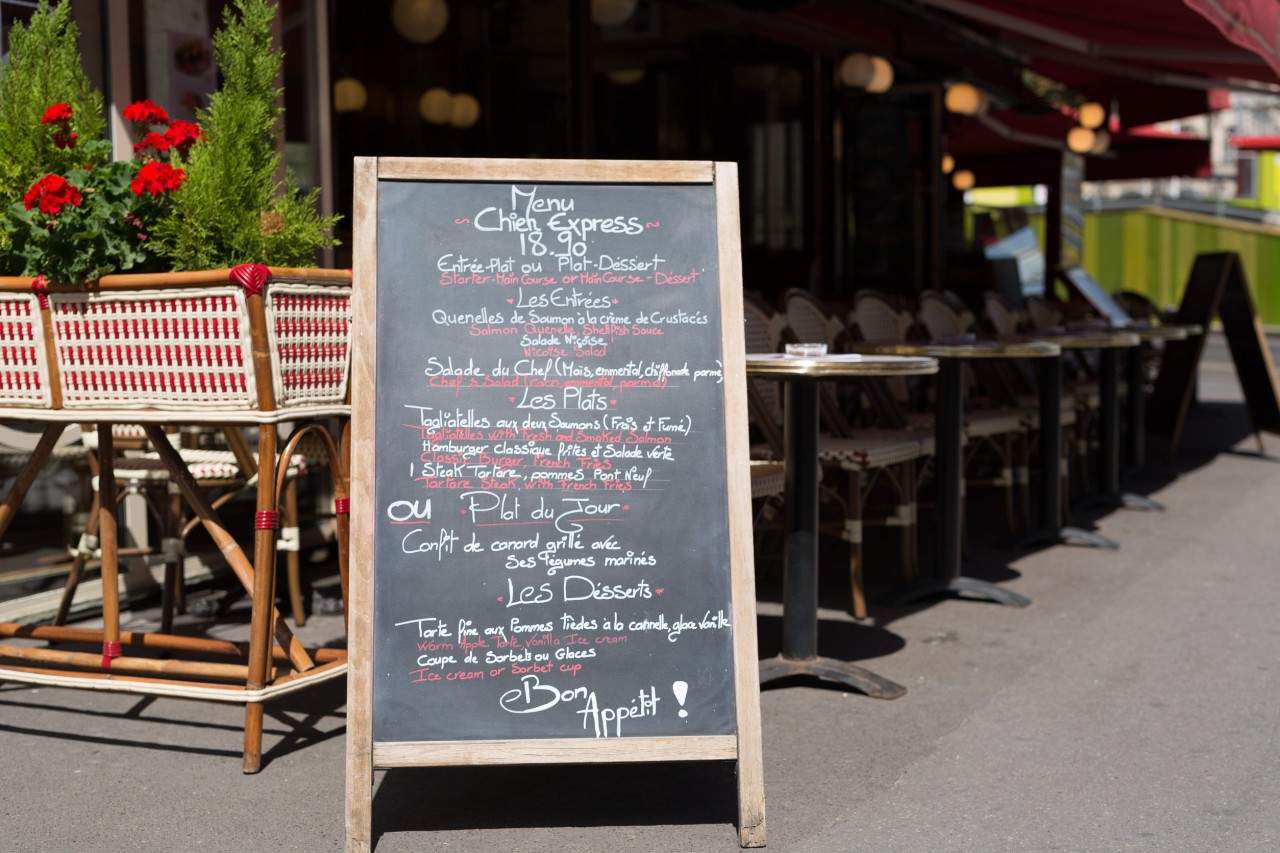 Menu
~ Chien Express ~
18.90
Entrée-Plat ou Plat-Déssert
Starter-Main Course or Main Course - Dessert
Les Entrées
Quenelles de Saumon à la crème de Crustacés
Salmon Quenelle, Shellfish Sauce
Salade Niçoise
Nicoise Salad
Salade du Chef (Maïs, emmental, chiffonade parme)
Chef's Salad (corn, emmental, parma)
Les Plats
Tagliatelles aux deux Saumons (Frais et Fumé)
Tagliatelles with Fresh and Smoked Salmon
Hamburger classique frites et Salade verte
Classic Burger, French Fries
Steak Tartare, pommes Pont Neuf
Tartare Steak, with French Fries
OU Plat du Jour
Confit de canard grillé avec
Ses légumes marinés
Les Désserts
Tarte fine aux Pommes tièdes à la cannelle, glace vanille
Warm Apple Tarte, Vanilla Ice cream
Coupe de Sorbets ou Glaces
Ice cream or Sorbet cup
Bon
Appétit !